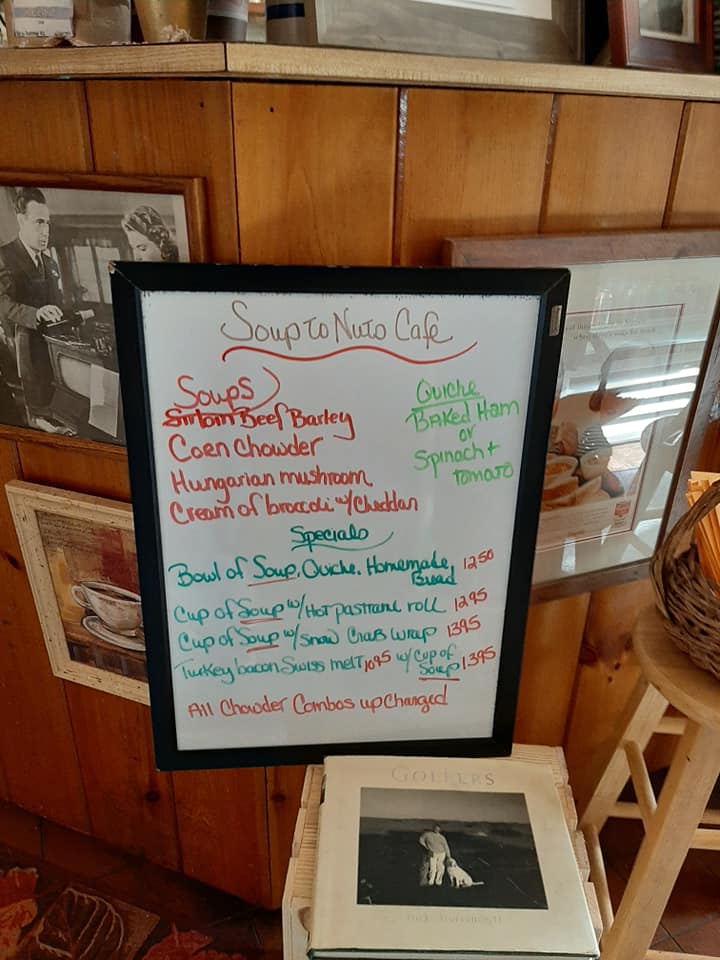 Soup to Nuts Cafe
Soups
Sirloin Beef Barley
Corn Chowder
Hungarian mushroom
Cream of broccoli w/ Cheddar
Quiche
Baked Ham
or
Spinach +
tomato
Specials
Bowl of Soup, Quiche, Homemade Bread 1250
Cup of Soup w/ Hot pastrami roll 1295
Cup of Soup w/ Snow Crab wrap 1395
Turkey bacon Swiss melt 1095 w/ Cup of Soup 1395
All Chowder Combos upcharged
GOLFERS